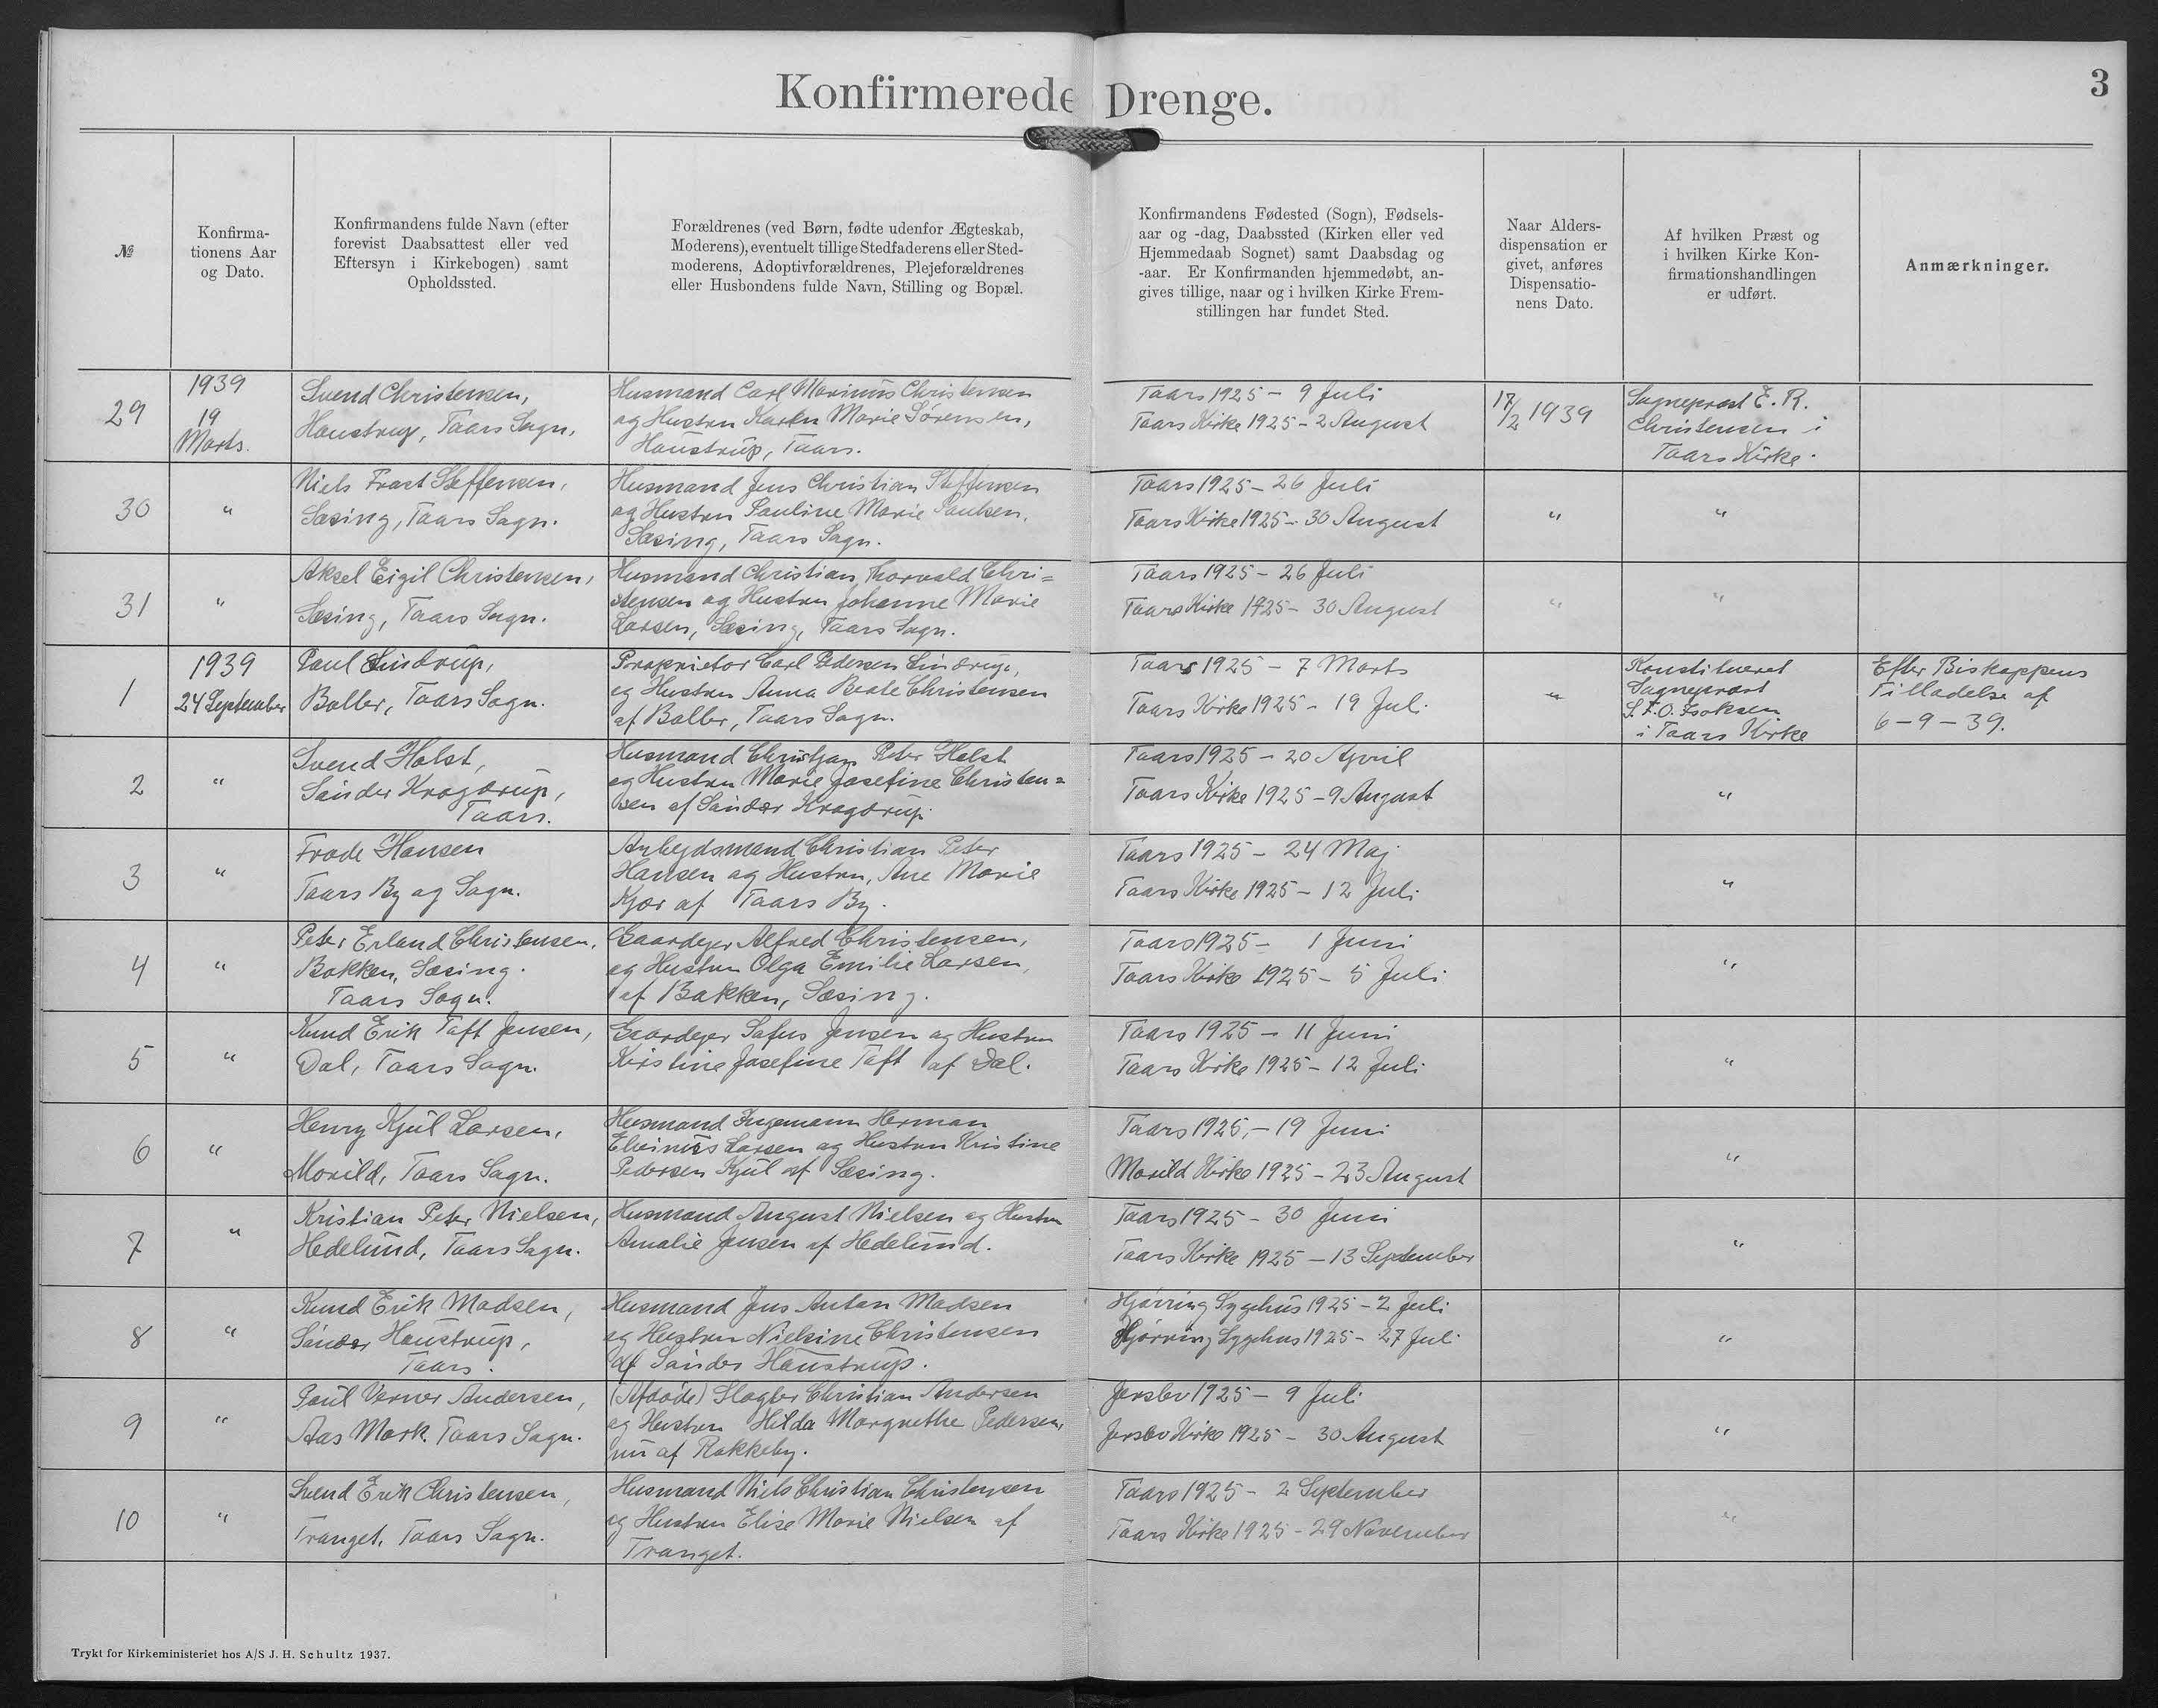 Konfirmerede Drenge.
3
№
Konfirma-
tionens Aar
og Dato.
Konfirmandens fulde Navn (efter
forevist Daabsattest eller ved
Eftersyn i Kirkebogen) samt
Opholdssted.
Forældrenes (ved Børn, fødte udenfor Ægteskab,
Moderens), eventuelt tillige Stedfaderens eller Sted-
moderens, Adoptivforældrenes, Plejeforældrenes
eller Husbondens fulde Navn, Stilling og Bopæl.
Konfirmandens Fødested (Sogn), Fødsels-
aar og -dag, Daabssted (Kirken eller ved
Hjemmedaab Sognet) samt Daabsdag og
-aar. Er Konfirmanden hjemmedøbt, an-
gives tillige, naar og i hvilken Kirke Frem-
stillingen har fundet Sted.
Naar Alders-
dispensation er
givet, anføres
Dispensatio-
nens Dato.
Af hvilken Præst og
i hvilken Kirke Kon-
firmationshandlingen
er udført.
Anmærkninger.
29
1939
19
Marts.
Svend Christensen,
Haustrup, Taars Sogn.
Husmand Carl Marinus Christensen
og Hustru Karen Marie Sørensen,
Haustrup, Taars.
Taars 1925 - 9 Juli
Taars Kirke 1925 - 2 August
17/2 1939
Sognepræst E. R.
Christensen i
Taars Kirke.
30
"
Niels Frost Steffensen,
Sæsing, Taars Sogn.
Husmand Jens Christian Steffensen
og Hustru Pauline Marie Paulsen,
Sæsing, Taars Sogn.
Taars 1925 - 26 Juli
Taars Kirke 1925 - 30 August
"
"
31
"
Aksel Eigil Christensen,
Sæsing, Taars Sogn.
Husmand Christian Thorvald Chri=
stensen og Hustru Johanne Marie
Larsen, Sæsing, Taars Sogn.
Taars 1925 - 26 Juli
Taars Kirke 1925 - 30 August
"
"
1
1939
24 September
Poul Lindrup,
Boller, Taars Sogn.
Proprietær Carl Pedersen Lindrup,
og Hustru Anna Beate Christensen
af Boller, Taars Sogn.
Taars 1925 - 7 Marts
Taars Kirke 1925 - 19 Juli
"
Konstitueret
Sognepræst
i Taars Kirke
Efter Biskoppens
Tilladelse af
6-9-39.
2
"
Svend Holst,
Sønder Kragdrup,
Taars.
Husmand Christjan Peter Holst
og Hustru Marie Josefine Christen=
sen af Sønder Kragdrup.
Taars 1925 - 20 April
Taars Kirke 1925 - 9 August
"
3
"
Frode Hansen
Taars By og Sogn.
Arbejdsmand Christian Peter
Hansen og Hustru, Ane Marie
Kjær af Taars By.
Taars 1925 - 24 Maj
Taars Kirke 1925 - 12 Juli
"
4
"
Peter Erland Christensen,
Bakken, Sæsing.
Taars Sogn.
Gaardejer Alfred Christensen,
og Hustru Olga Emilie Larsen,
af Bakken, Sæsing.
Taars 1925 - 1 Juni
Taars Kirke 1925 - 5 Juli
"
5
"
Knud Erik Toft Jensen,
Dal, Taars Sogn.
Gaardejer Sofus Jensen og Hustru
Kirstine Josefine Toft af Dal.
Taars 1925 - 11 Juni
Taars Kirke 1925 - 12 Juli
"
6
"
Henry Kjul Larsen,
Morild, Taars Sogn.
Husmand Ingemann Herman
Elvinus Larsen og Hustru Kristine
Pedersen Kjul af Sæsing.
Taars 1925, - 19 Juni
Morild Kirke 1925 - 23 August
"
7
"
Kristian Peter Nielsen,
Hedelund, Taars Sogn.
Husmand August Nielsen og Hustru
Amalie Jensen af Hedelund.
Taars 1925 - 30 Juni
Taars Kirke 1925 - 13 September
"
8
"
Knud Erik Madsen,
Sønder Haustrup,
Taars.
Husmand Jens Anton Madsen
og Hustru Nielsine Christensen
af Sønder Haustrup.
Hjørring Sygehus 1925 - 2 Juli
Hjørring Sygehus 1925 - 27 Juli
"
9
"
Poul Verner Andersen,
Aas Mark. Taars Sogn.
(Afdøde) Slagter Christian Andersen
og Hustru Hilda Margrethe Pedersen,
nu af Rakkeby.
Jerslev 1925 - 9 Juli
Jerslev Kirke 1925 - 30 August
"
10
"
Svend Erik Christensen,
Tranget, Taars Sogn.
Husmand Niels Christian Christensen
og Hustru Elise Marie Nielsen af
Tranget.
Taars 1925 - 2 September
Taars Kirke 1925 - 29 November
"
Trykt for Kirkeministeriet hos A/S J. H. Schultz 1937.